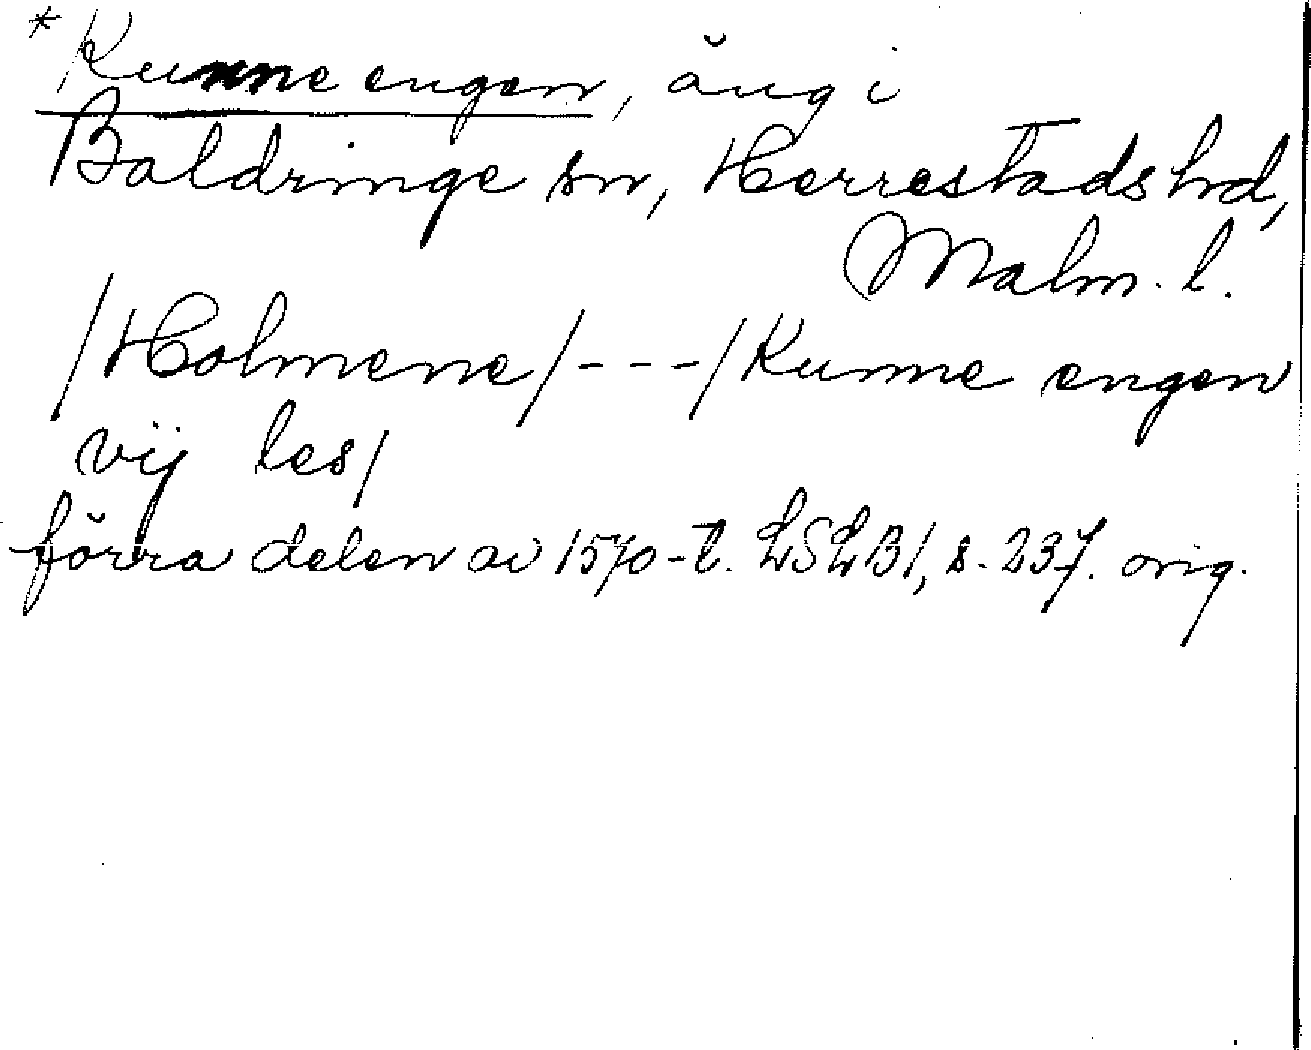 * Kunne engen, äng i
Baldringe sn, Herrestads hd,
Malm. l.
/Holmene/---/Kunne engen
vij les/
förra delen av 1570-t. LSLB1, s. 237. orig.